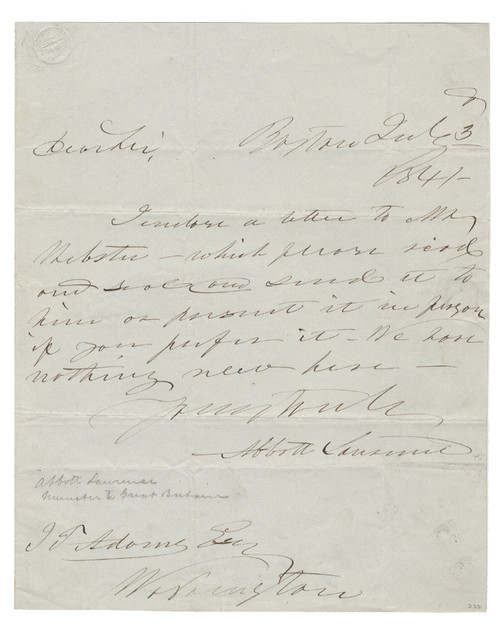 Boston July 3
Dear Sir,
1841
I enclose a letter to Mr
Webster – which please read
and seal and send it to
him or present it in person
if you prefer it – We have
nothing new here –
Yours truly
Abbott Lawrence
Abbott Lawrence
Minister to Great Britain
Adams Esq
Washington